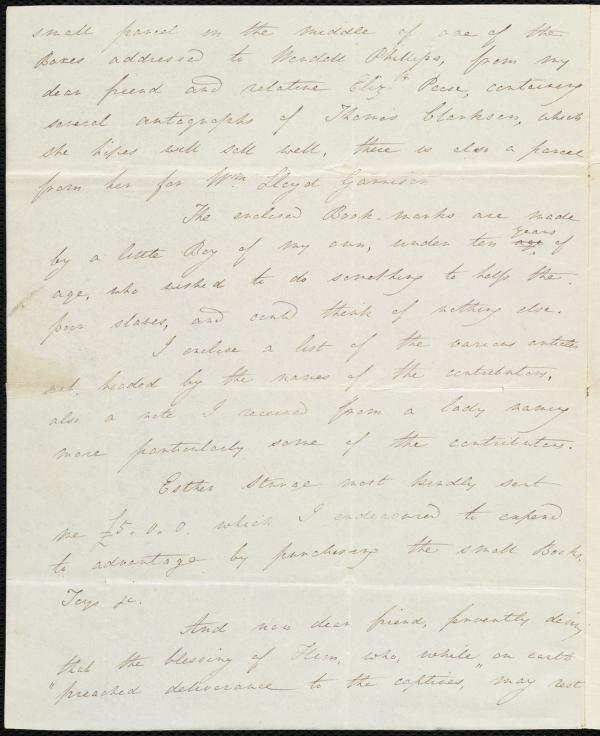 small parcel in the middle of one of the
Boxes addressed to Wendell Phillips, from my
dear friend and relative Eliz.th Pease, containing
several autographs of Thomas Clarkson, which
she hopes will sell well, there is also a parcel
from her for Wm. Lloyd Garrison
The enclosed Book-marks are made
by a little Boy of my own, under ten age years of
age, who wished to do something to help the
poor slaves, and could think of nothing else.
I enclose a list of the various articles
headed by the names of the contributors,
also a note I received from a lady naming
more particularly some of the contributors.
Esther Sturge most kindly sent
me £5. 0. 0. which I endeavoured to expend
to advantage by purchasing the small Books,
Toys &c.
And now dear friend, fervently desiring
that the blessing of Him, who, while on earth
"preached deliverance to the captives," may rest